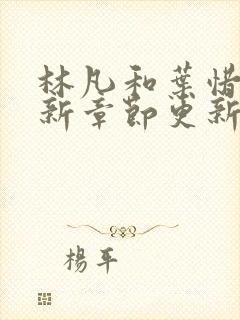 林凡和葉惜
新章節更新
楊平